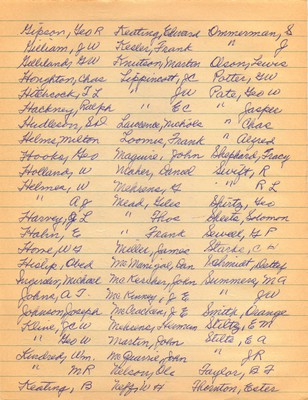 Gipson, Geo R Keating, Edward Ommerman, S
Gilliam, J W Kesler, Frank " J
Gilliland, G W Knutson, Marten Olson, Lewis
Houghton, Chas Lippincott, J C Potter, G W
Hitchcock, T L " J W Pate, Geo W
Hackney, Ralph " E C " Jasper
Hudleson, Ed Lawrence, Nichols " Chas
Helms, Milton Loomis, Frank " Alfred
Hooks, Geo Maguire, John Shephard, Tracy
Holland, W Meaher, Daniel Swift, R
Helmer, W Mehrens, G " R L
" A J Mead, Giles Shirts, Geo
Harvey, J L " Thos Skeets, Solomon
Hahn, E " Frank Sewell, G P
Hone, W G Miller, James Stacke, C H
Hislip, Obed McManigal, Dan Schmidt, Detlef
Snyder, Michael McKercher, John Summers, M A
Johns, A. T. McKinney, J E " J W
Johnson, Joseph McEachen, J E Smith, Orange
Kline, J C W Mekiens, Herman Stiltz, E M
" Geo W Martin, John Stile, E A
Kindred, Wm. McGuire, John " J R
" M R Nelson, Ole Taylor, B F
Keating, B Neff, W H Thornton, Ester